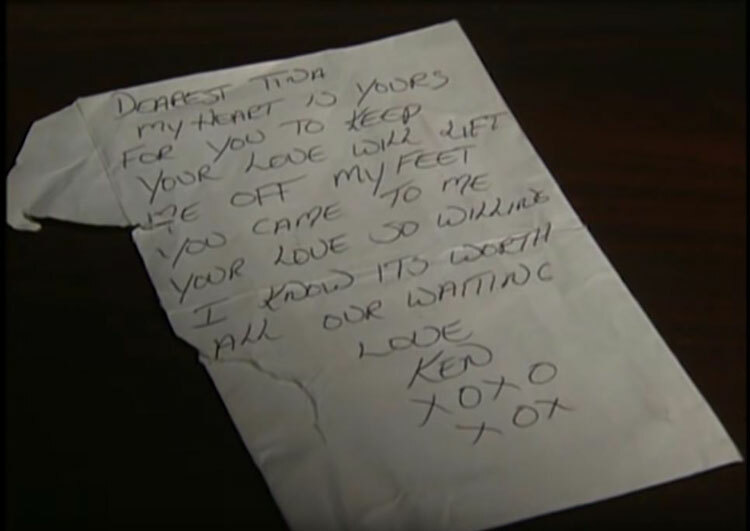 DEAREST TINA
MY HEART IS YOURS
FOR YOU TO KEEP
YOUR LOVE WILL LIFT
ME OFF MY FEET
YOU CAME TO ME
YOUR LOVE SO WILLING
I KNOW ITS WORTH
ALL OUR WAITING
LOVE
KEN
XOXO
XOX